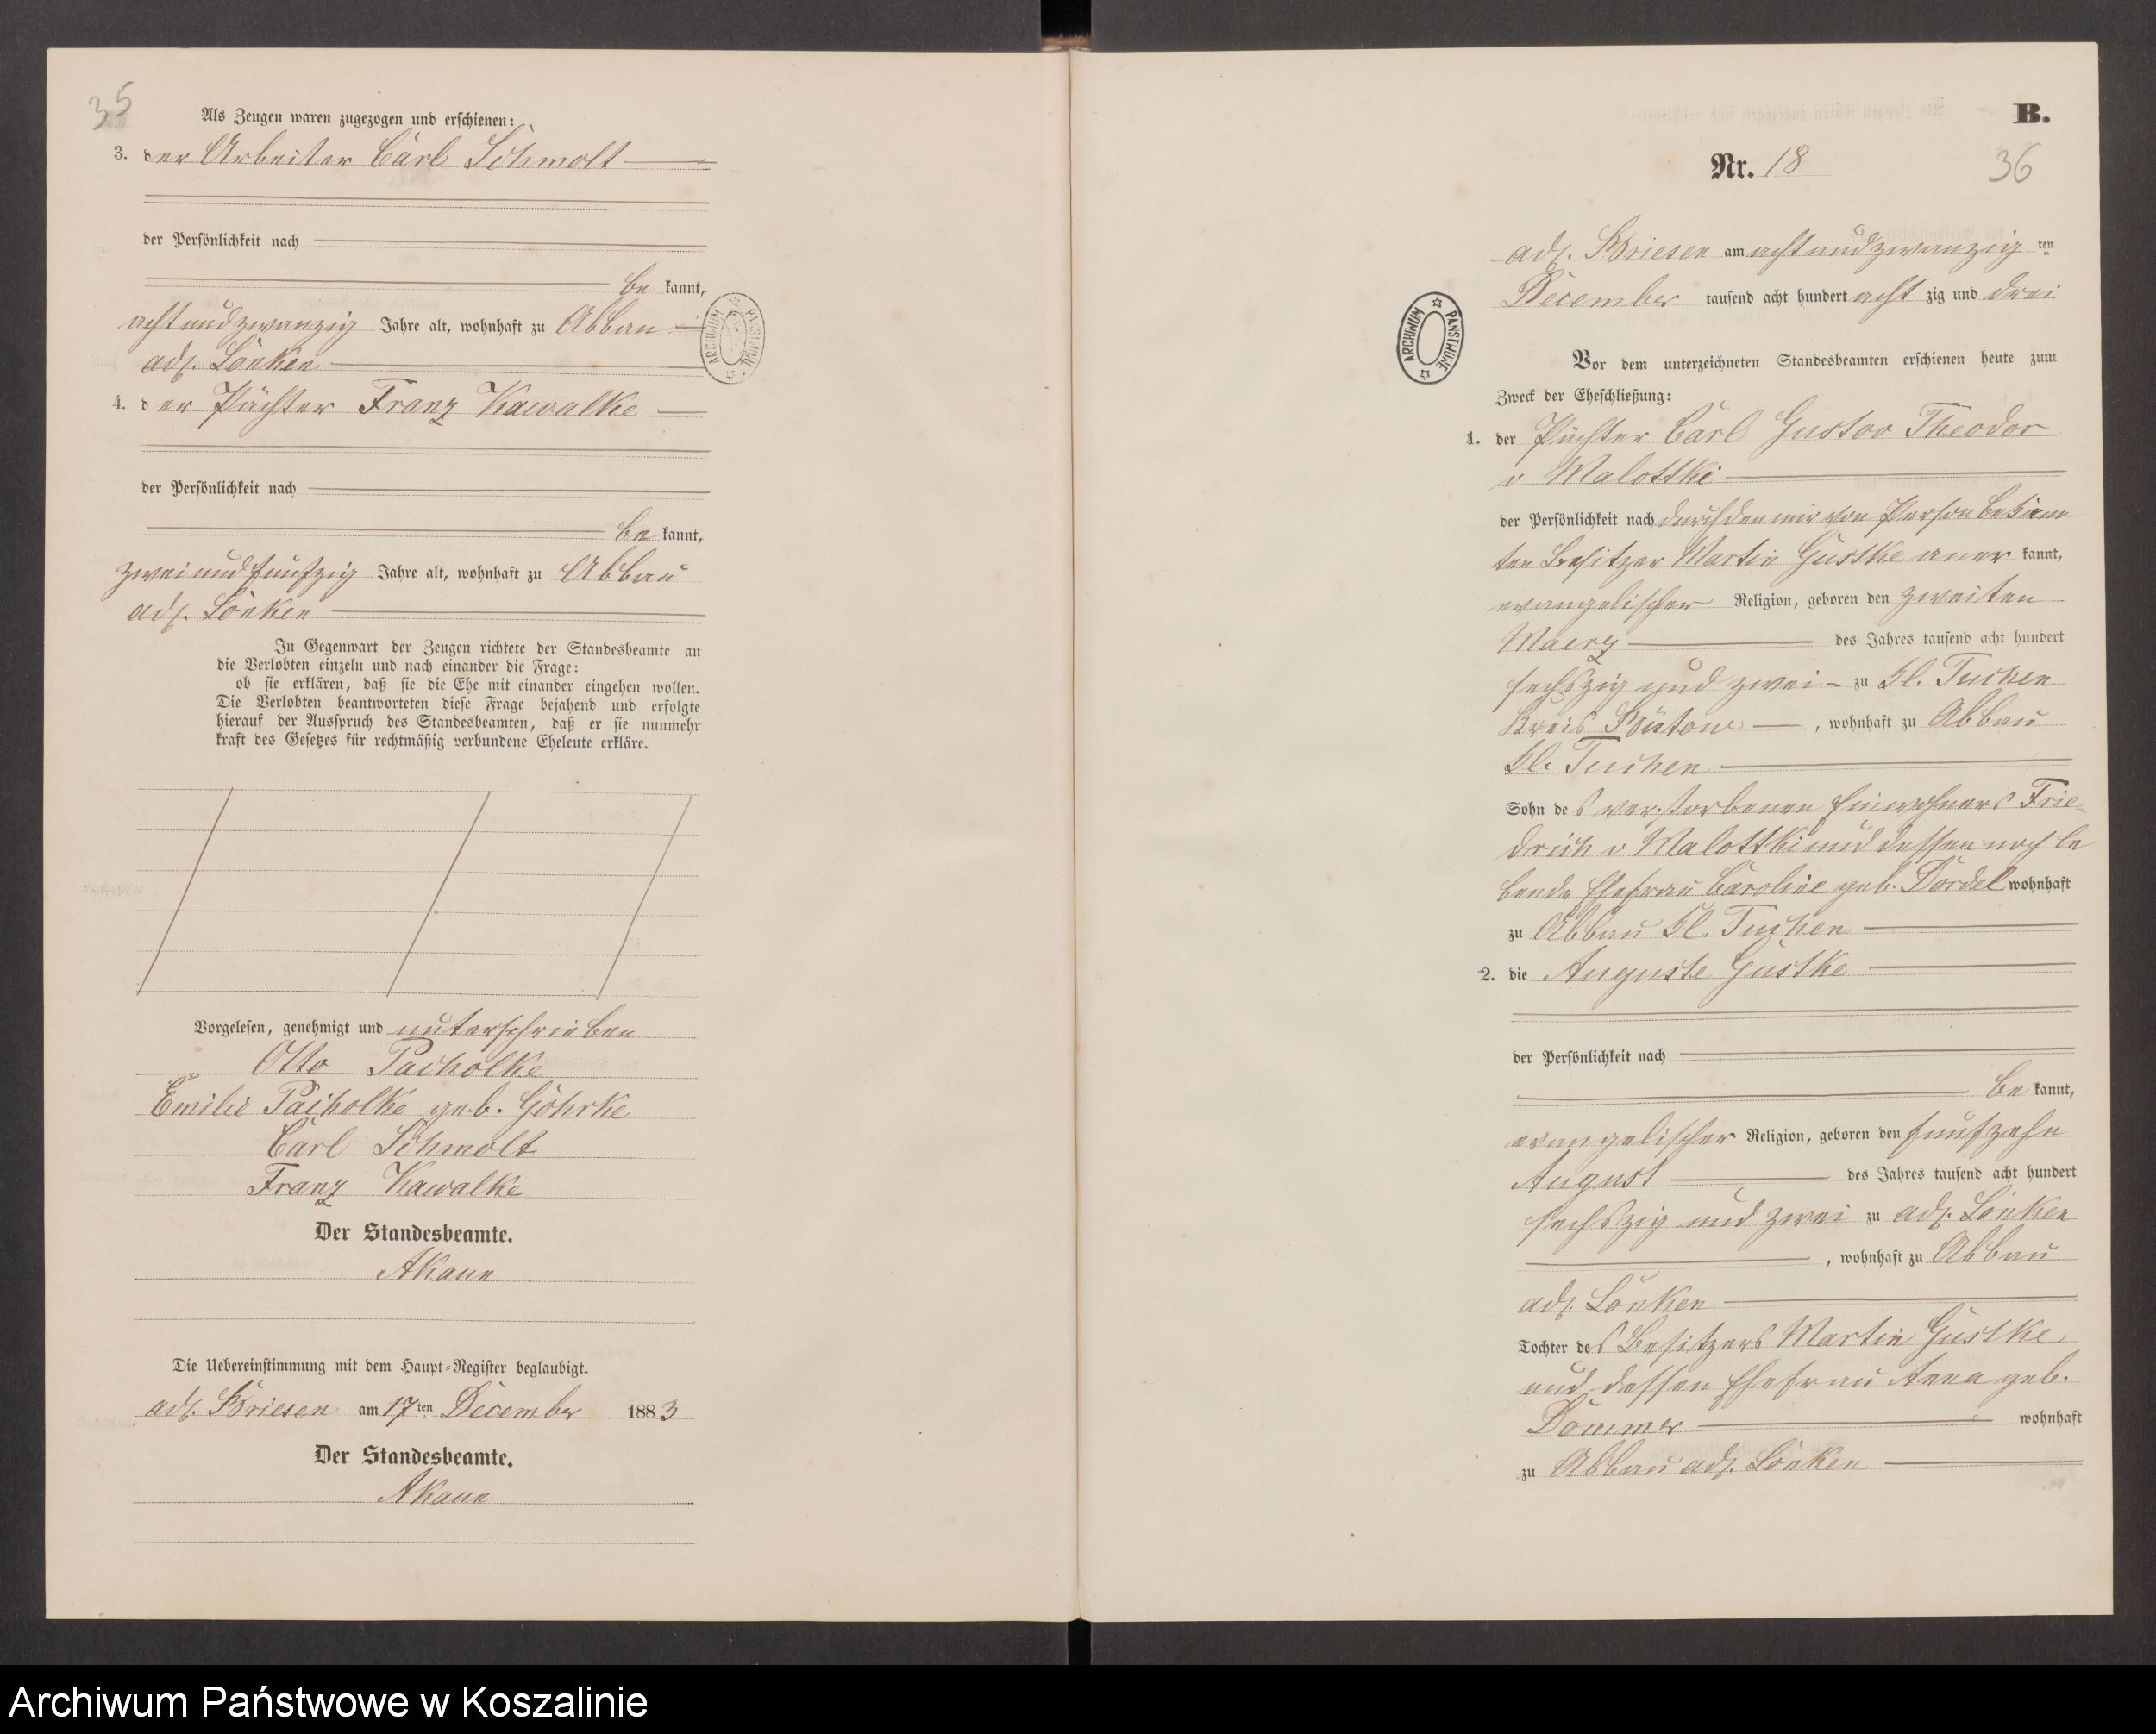 35
Als Zeugen waren zugezogen und erschienen:
3. der Arbeiter Carl Schmolt
der Persönlichkeit nach
be kannt,
achtundzwanzig Jahre alt, wohnhaft zu Abbau
adl. Lonken
4. der Pächter Franz Kawalke
der Persönlichkeit nach
be kannt,
zweiundfunfzig Jahre alt, wohnhaft zu Abbau
adl. Lonken
In Gegenwart der Zeugen richtete der Standesbeamte an
die Verlobten einzeln und nach einander die Frage:
ob sie erklären, daß sie die Ehe mit einander eingehen wollen.
Die Verlobten beantworteten diese Frage bejahend und erfolgte
hierauf der Ausspruch des Standesbeamten, daß er sie nunmehr
kraft des Gesetzes für rechtmäßig verbundene Eheleute erkläre.
Vorgelesen, genehmigt und unterschrieben
Otto Pacholke
Emilie Pacholke geb. Göhrke
Carl Schmolt
Franz Kawalke
Der Standesbeamte.
AKaun
Die Uebereinstimmung mit dem Haupt-Register beglaubigt.
adl. Briesen am 17ten December 1883
Der Standesbeamte.
AKaun
ARCHIWUM PAŃSTWOWE
B.
Nr. 18
36
adl. Briesen am achtundzwanzig ten
December tausend acht hundert acht zig und drei
ARCHIWUM PAŃSTWOWE
Vor dem unterzeichneten Standesbeamten erschienen heute zum
Zweck der Eheschließung:
1. der Pächter Carl Gustav Theodor
v Malottki
der Persönlichkeit nach durch den mir von Person bekann
ten Besitzer Martin Gustke aner kannt,
evangelischer Religion, geboren den zweiten
Maerz des Jahres tausend acht hundert
sechszig und zwei zu Kl. Tuchen
Kreis Bütow, wohnhaft zu Abbau
Kl. Tuchen
Sohn des verstorbenen Einwohners Frie-
drich v Malottki und dessen noch le
bende Ehefrau Caroline geb. Dordel wohnhaft
zu Abbau Kl. Tuchen
2. die Auguste Gustke
der Persönlichkeit nach
be kannt,
evangelischer Religion, geboren den funfzehn
August des Jahres tausend acht hundert
sechszig und zwei zu adl. Lonken
, wohnhaft zu Abbau
adl. Lonken
Tochter des Besitzers Martin Gustke
und dessen Ehefrau Anna geb.
Dommer wohnhaft
zu Abbau adl. Lonken
Archiwum Państwowe w Koszalinie